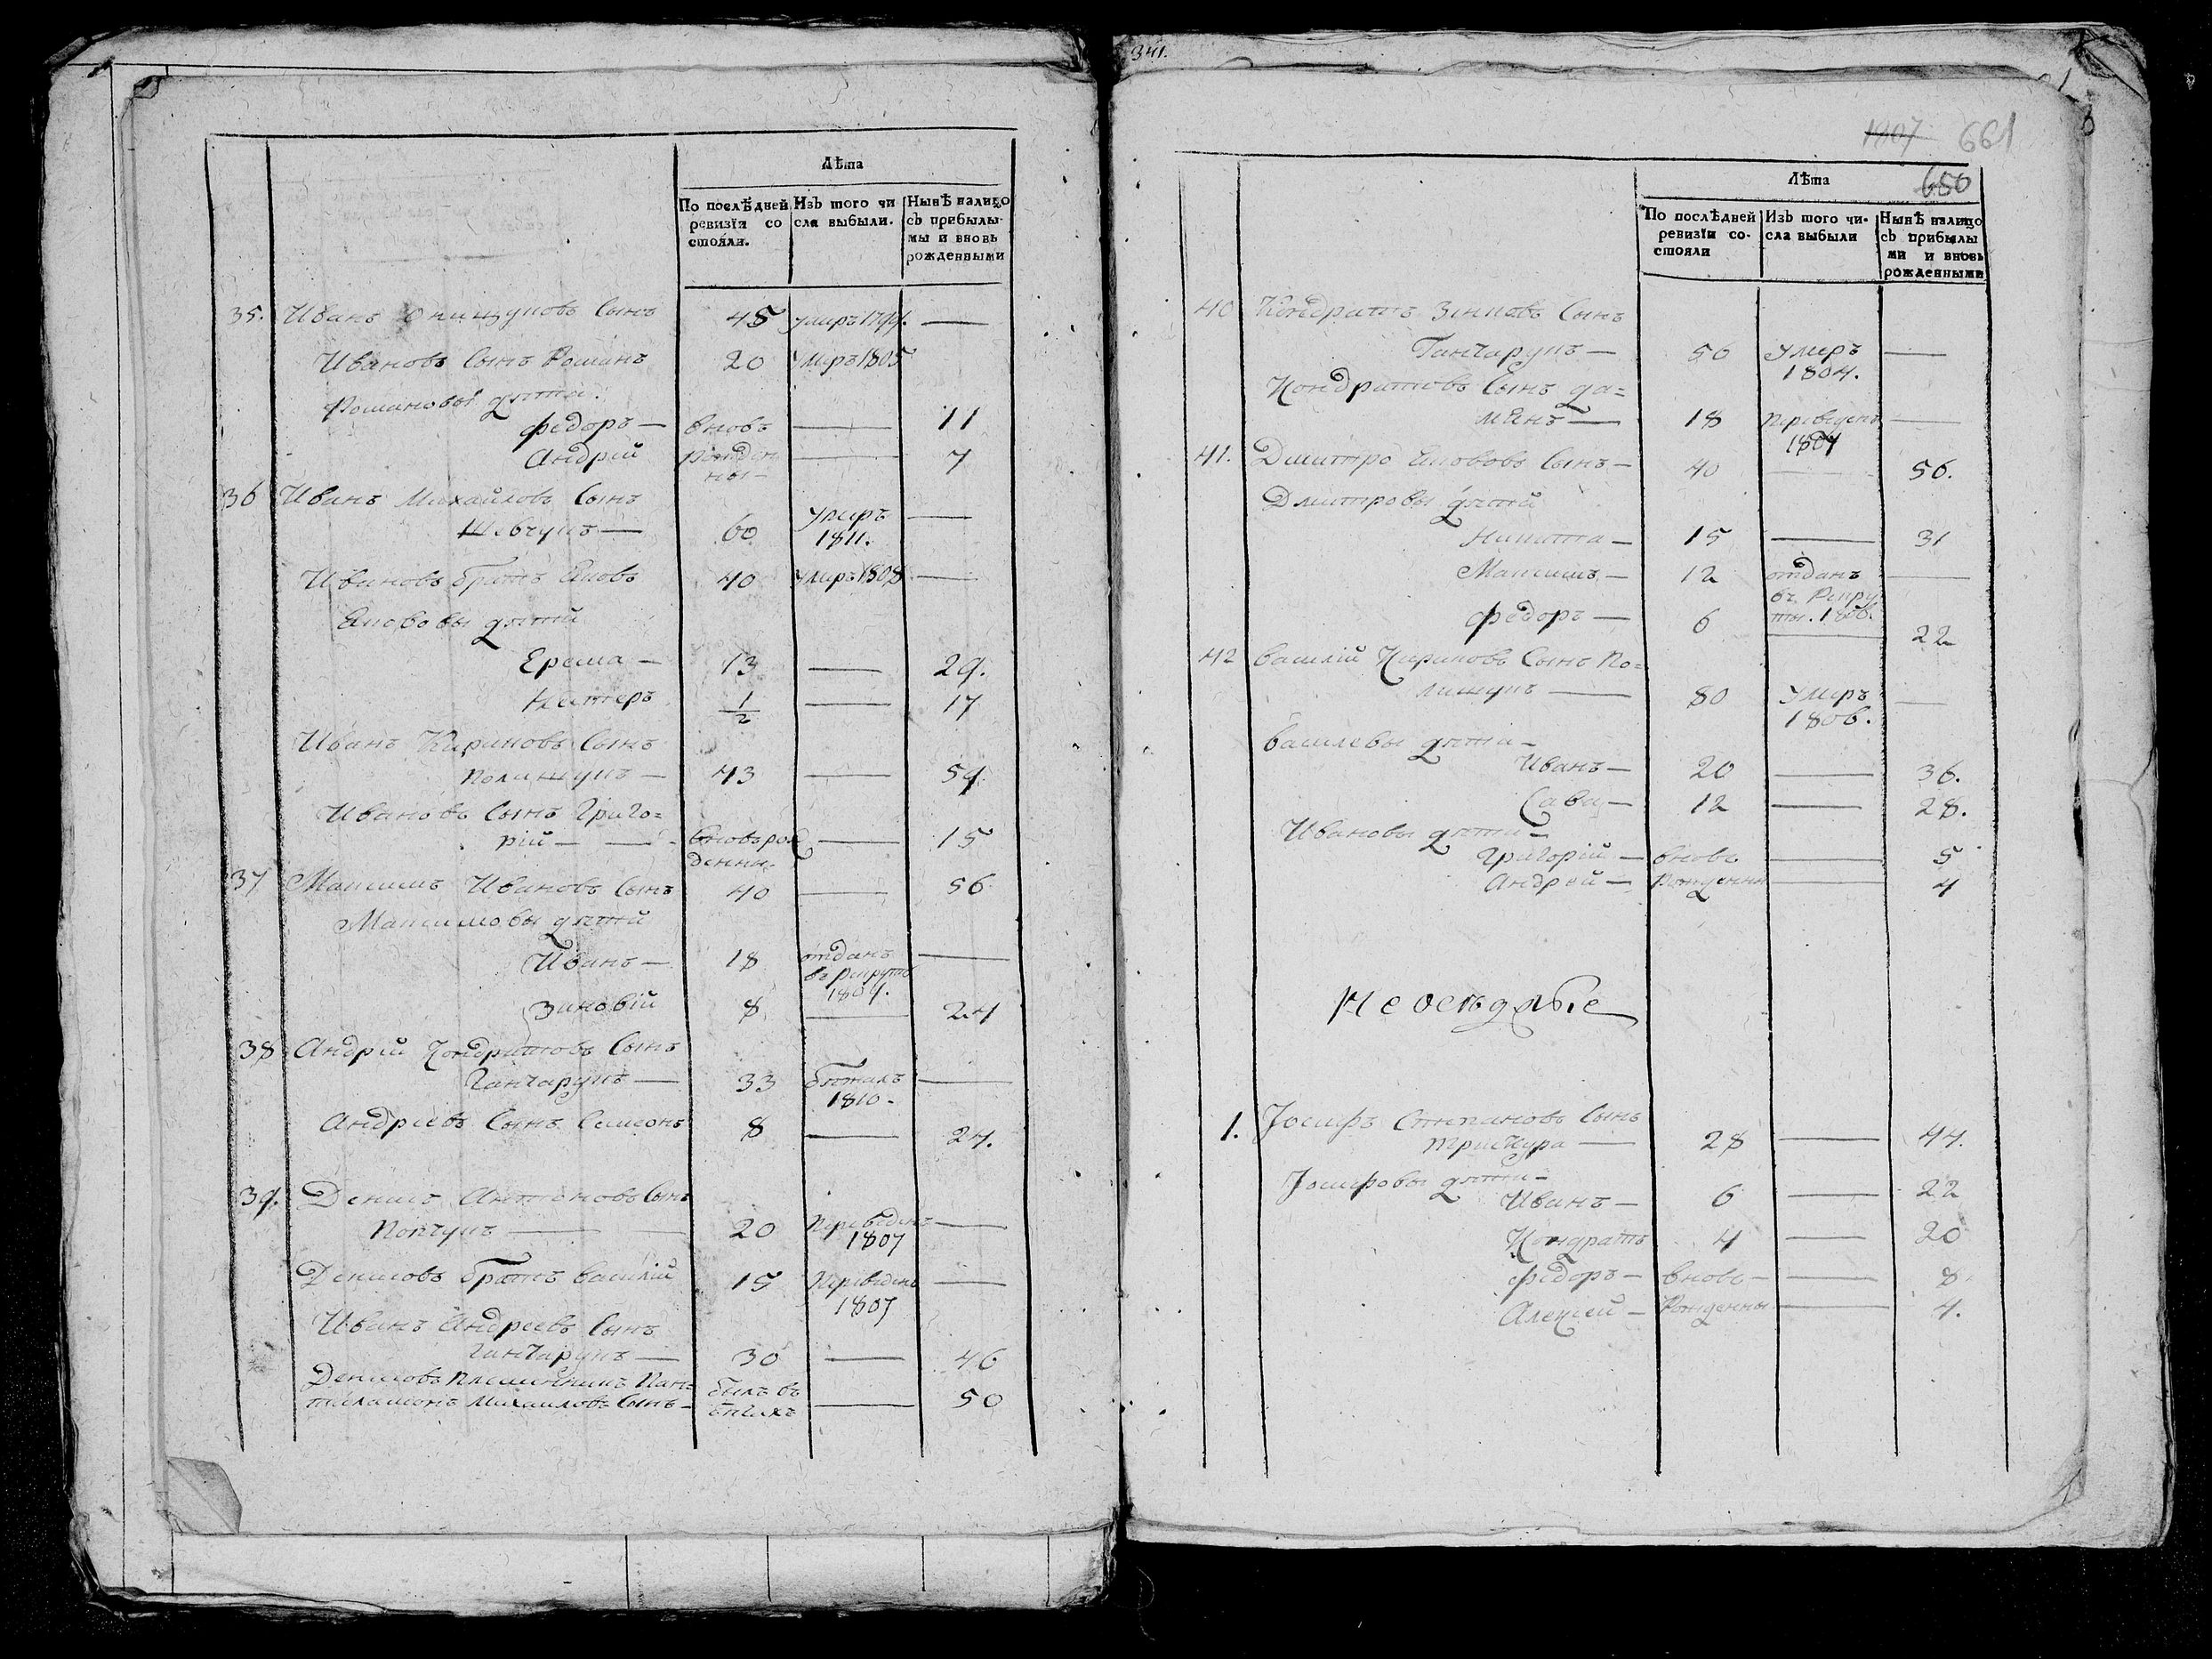 Лѣта
По послѣдней ревизіи со стояли.
Изъ того чи сла выбыли.
Нынѣ налицо съ прибылы- мы и вновь рожденными
35. Иванъ Опинзуковъ Сынъ 45 умеръ 1799. —
Ивановъ Сынъ Романъ 20 умеръ 1805
Романовы дѣти.
Федоръ — вновь — 11
Андрій рожден — 7
ны —
36 Иванъ Михайловъ Сынъ
Шевчукъ — 60 умеръ —
1811.
Ивановъ братъ Яковъ 40 умеръ 1808 —
Яковovы дѣти
Ерема — 13 — 29.
Нестеръ 1/2 — 17
Иванъ Кириковъ Сынъ
Полищукъ — 43 — 59.
Ивановъ Сынъ Григо=
рій — — вновь рож — 15
денны.
37 Максимъ Ивановъ Сынъ 40 — 56
Максимовы дѣти
Иванъ — 18 отданъ —
въ рекруты
1804.
Зиновій 8 — 24
38 Андрій Кондратовъ Сынъ
Ганчарукъ — 33 бѣжалъ —
1810.
Андреевъ Сынъ Семенъ 8 — 24.
39. Денисъ Антоновъ Сынъ
20 Переведенъ —
1807
Денисовъ братъ Василій 15 Переведенъ —
1807
Иванъ Андреевъ Сынъ
Ганчарукъ — 30 — 46
Денисовъ племянникъ Пан=
былъ въ
телимонъ Михаиловъ Сынъ — бѣгахъ — 50
341.
1007 661
650
Лѣта
По послѣдней ревизіи со- стояли
Изъ того чи- сла выбыли
Нынѣ налицо съ прибылы ми и вновь рожденными
40 Кондратъ Зінковъ Сынъ
Ганчарукъ — 56 умеръ —
1804.
Кондратовъ Сынъ Да=
мянъ — 18 Переведенъ —
1807
41. Дмитро Якововъ Сынъ — 40 — 56.
Дмитровы дѣти
Никита — 15 — 31
Максимъ — 12 отданъ —
въ Рекру
ты. 1806.
Федоръ — 6 — 22
42 Василій Кириковъ Сынъ По=
лищукъ — 80 умеръ —
1806.
Василевы дѣти —
Иванъ — 20 — 36.
Сава — 12 — 28.
Ивановы дѣти —
Григорій — вновь — 5
Андрей — Рожденны — 4
Неоседлые
1. Іосифъ Степановъ Сынъ
28 — 44.
Іосифовы дѣти —
Иванъ — 6 — 22
Кондратъ 4 — 20
Федоръ — вново — — 8.
Алексей — Рожденны — 4.